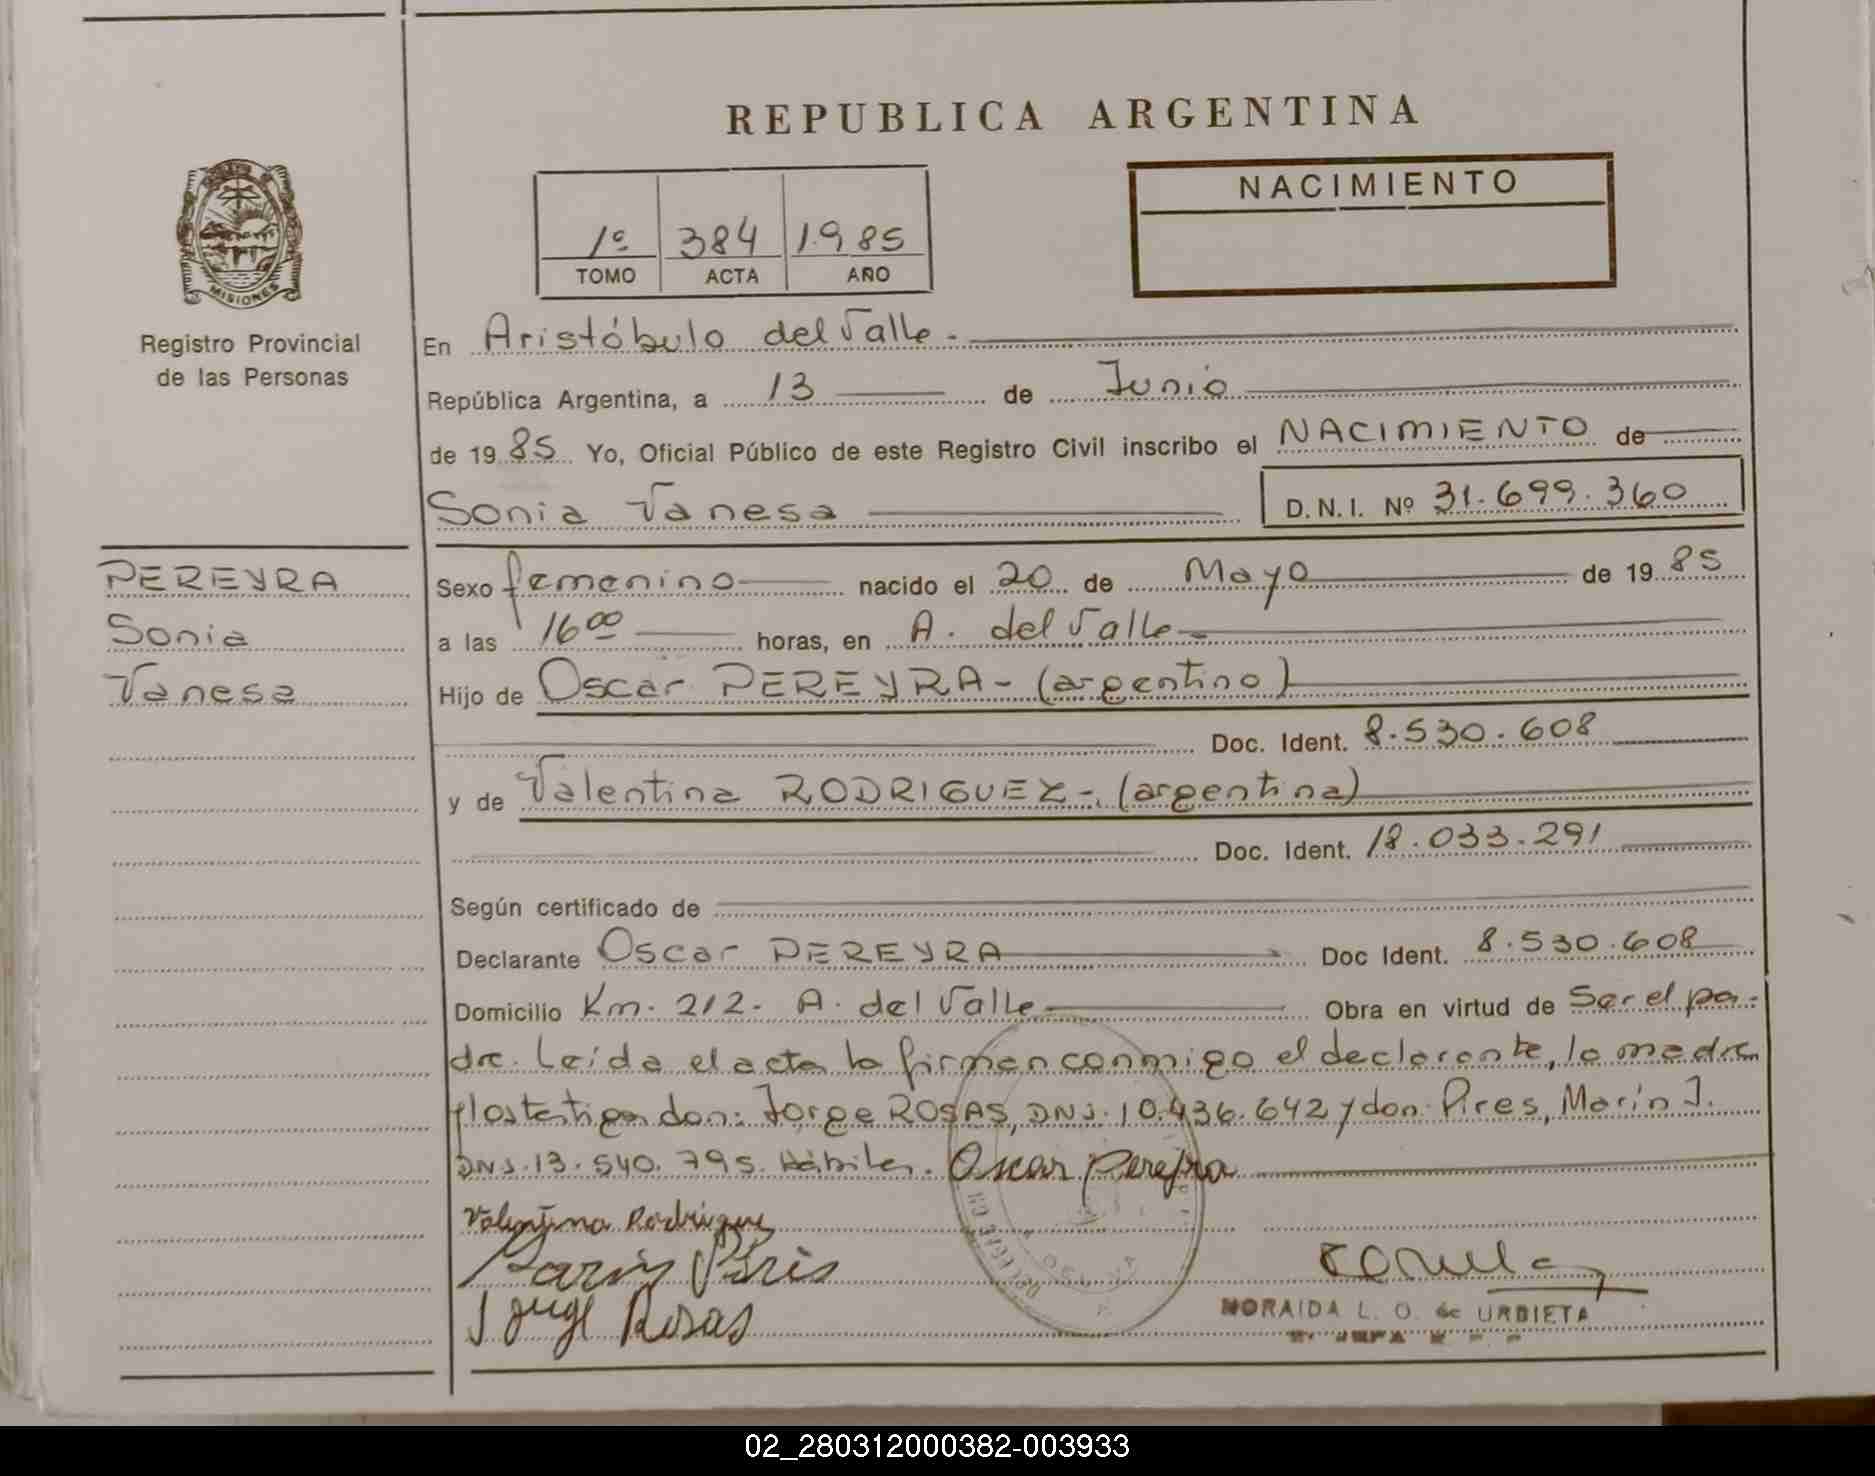 REPUBLICA ARGENTINA
1º 384 1985
TOMO ACTA AÑO
NACIMIENTO
MISIONES
Registro Provincial
de las Personas
En Aristóbulo del Valle.
República Argentina, a 13 de Junio
de 1985 Yo, Oficial Público de este Registro Civil inscribo el NACIMIENTO de
Sonia Vanesa D.N.I. Nº 31.699.360
PEREYRA
Sonia
Vanesa
Sexo femenino nacido el 20 de Mayo de 1985
a las 16 00 horas, en A. del Valle
Hijo de Oscar PEREYRA - (argentino)
Doc. Ident. 8.530.608
y de Valentina RODRIGUEZ -. (argentina)
Doc. Ident. 18.033.291
Según certificado de
Declarante Oscar PEREYRA Doc Ident. 8.530.608
Domicilio Km. 212. A. del Valle Obra en virtud de Ser el pa-
dre. Leída el acta la firman conmigo el declarante, la madre
y los testigos don: Jorge ROSAS, DNI. 10.436.642 y don: Pires, Marín J.
DNI. 13.540.795. Hábiles. Oscar Pereyra
Valentina Rodriguez
Marín Píris
Jorge Rosas
NORAIDA L. O. de URBIETA
02_280312000382-003933